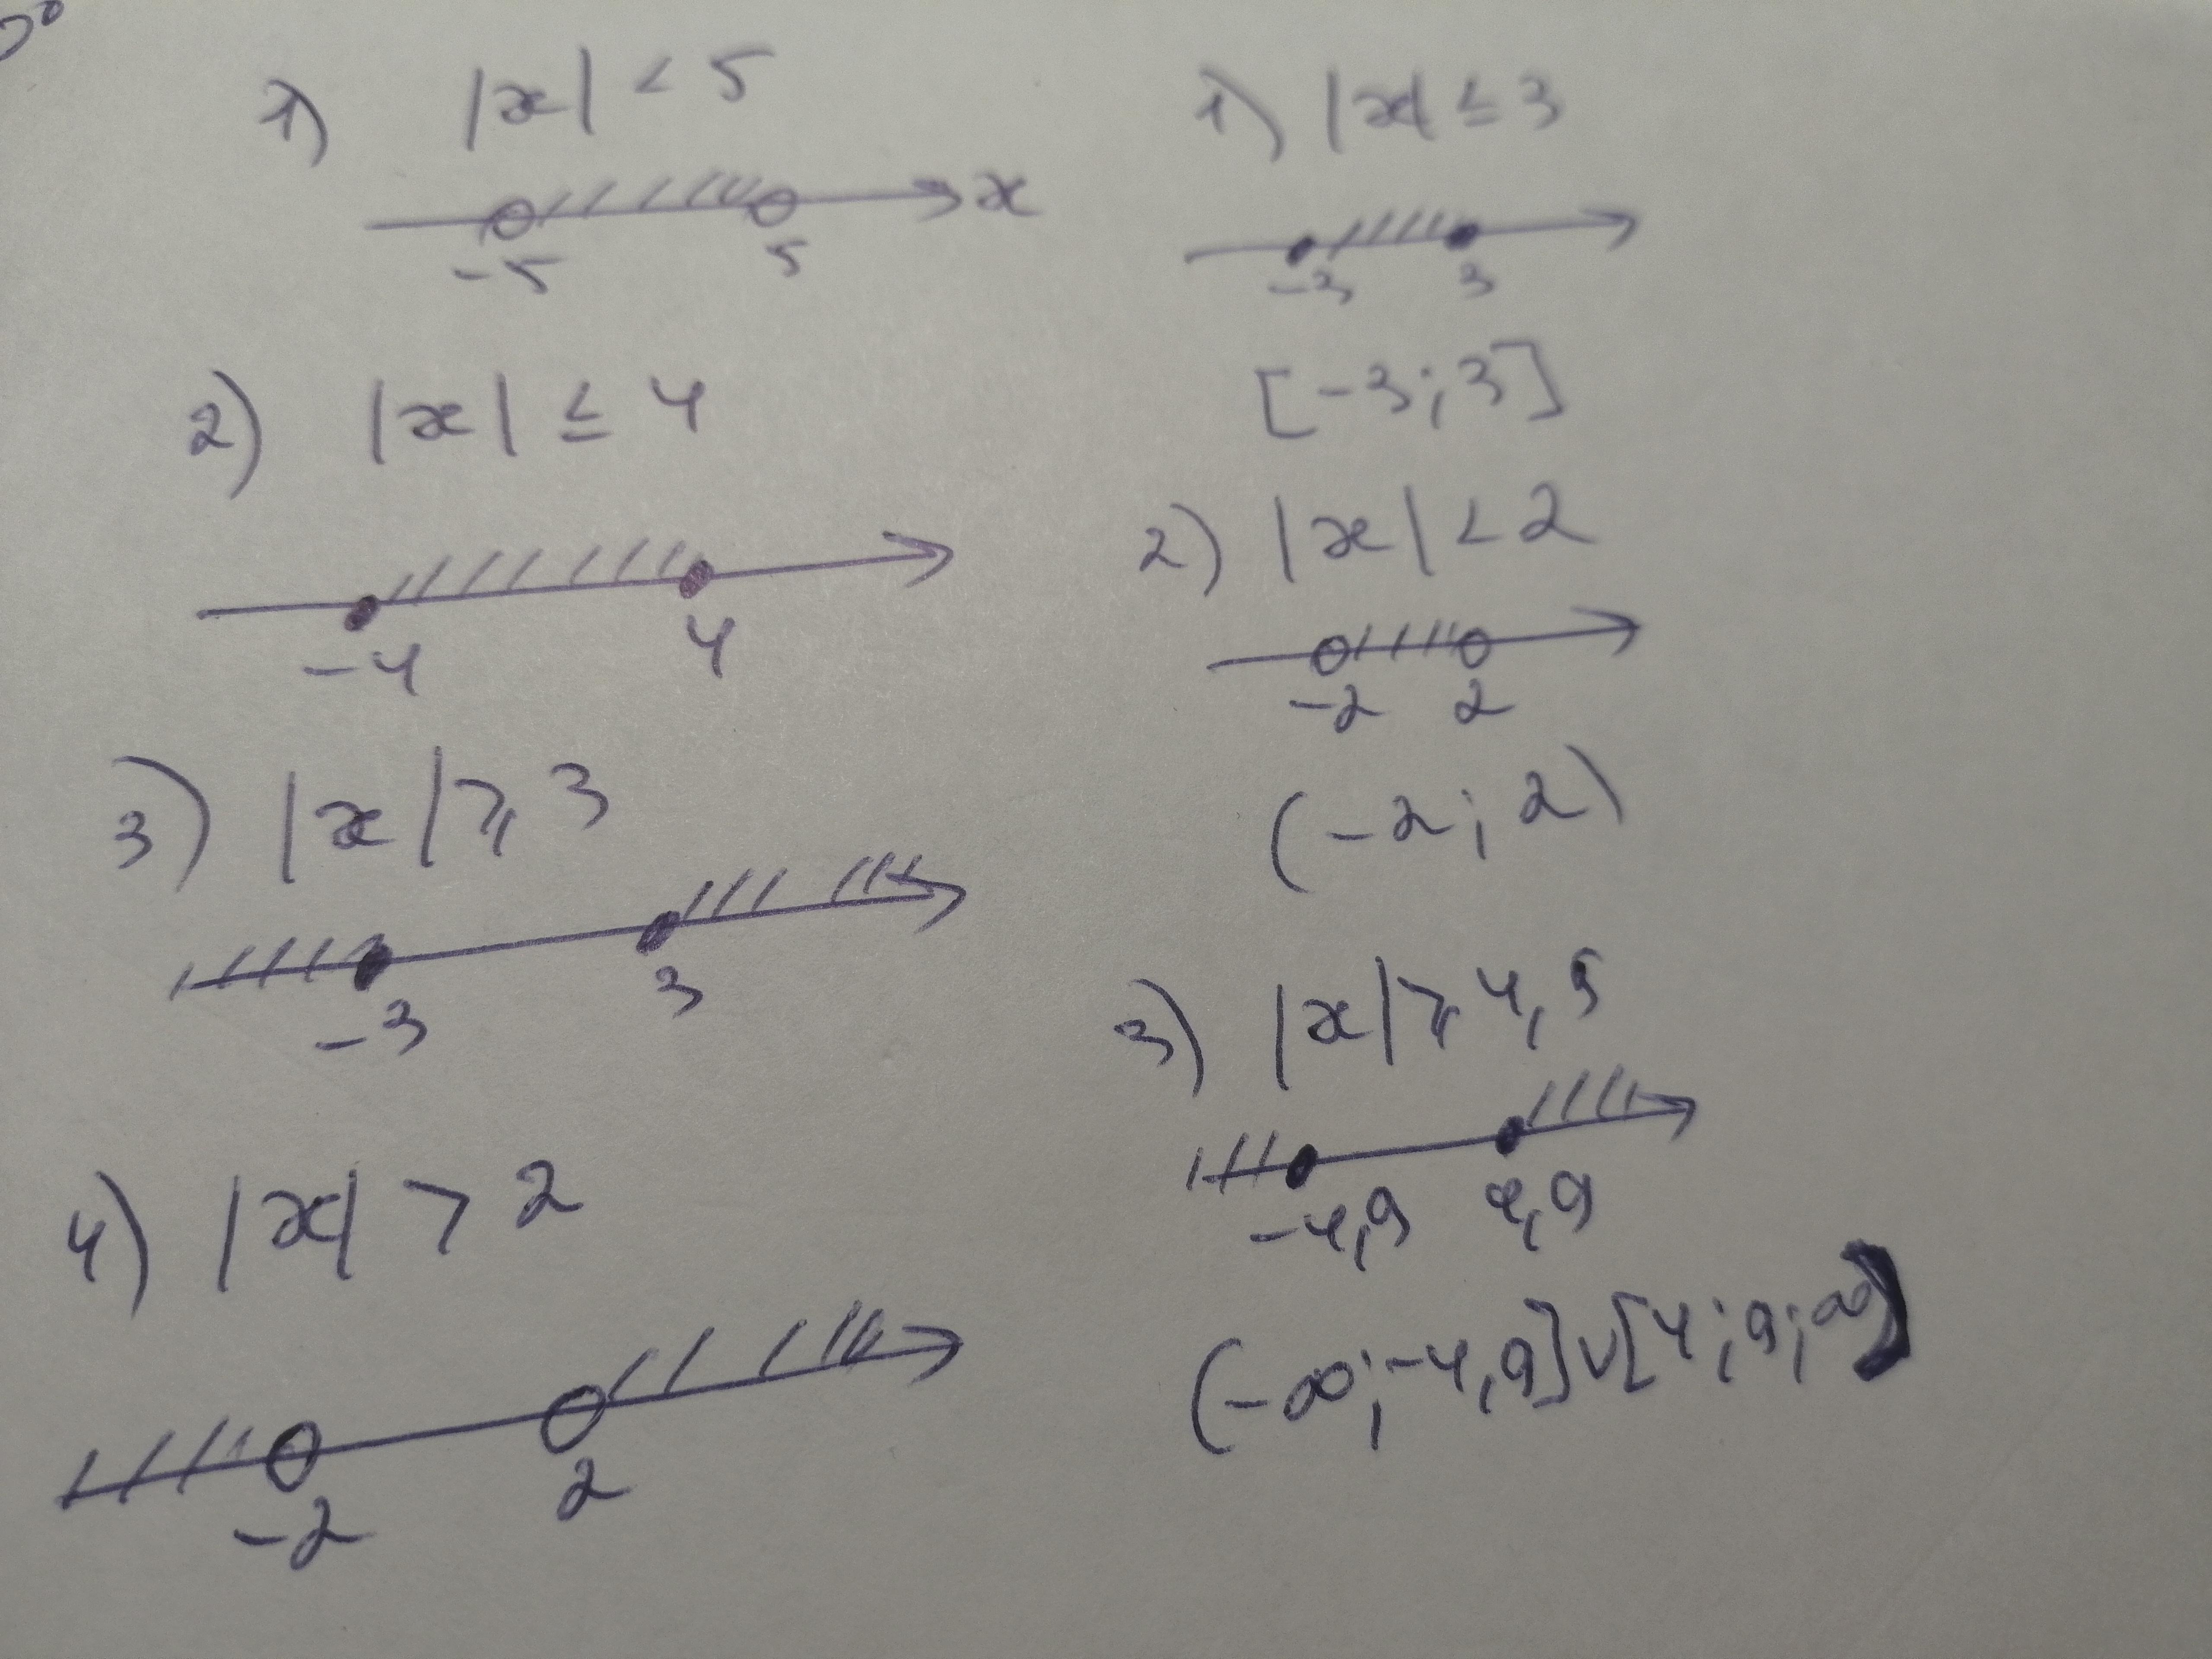 1) |x| < 5
x
-5 5
2) |x| ≤ 4
-4 4
3) |x| ⩾ 3
-3 3
4) |x| > 2
-2 2
1) |x| ≤ 3
-3 3
[-3;3]
2) |x| < 2
-2 2
(-2; 2)
3) |x| ⩾ 4,9
-4,9 4,9
(-∞;-4,9]∪[4;9;∞)